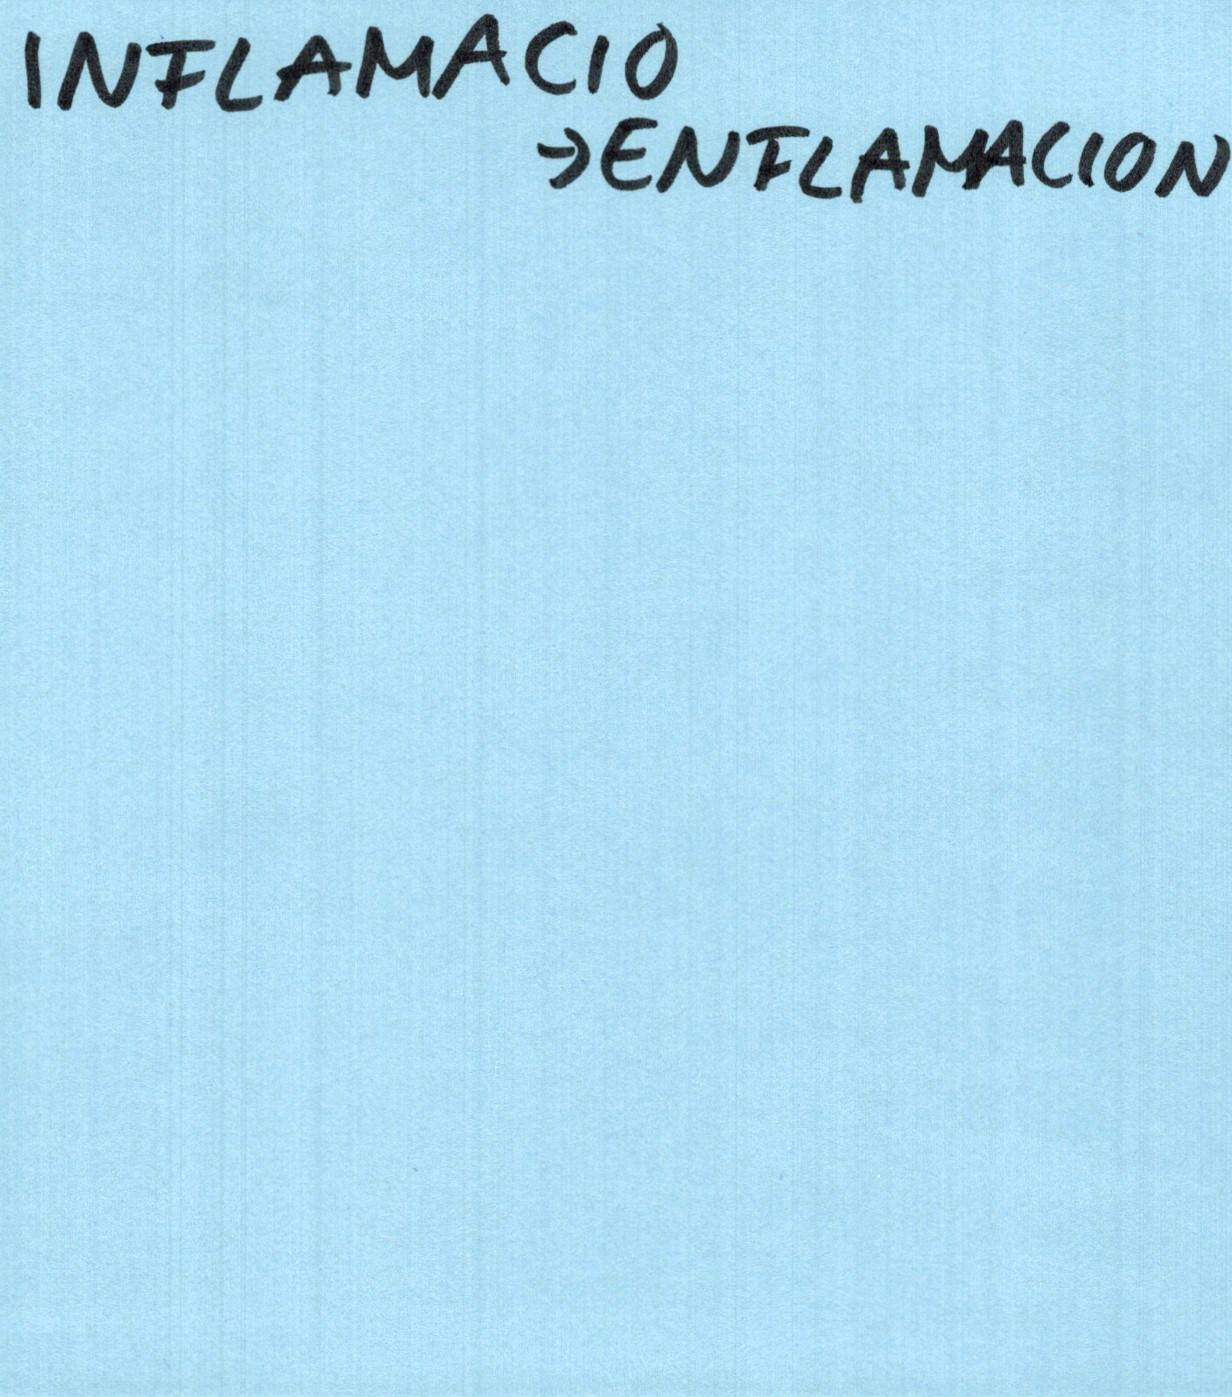 INFLAMACIO
→ENFLAMACION